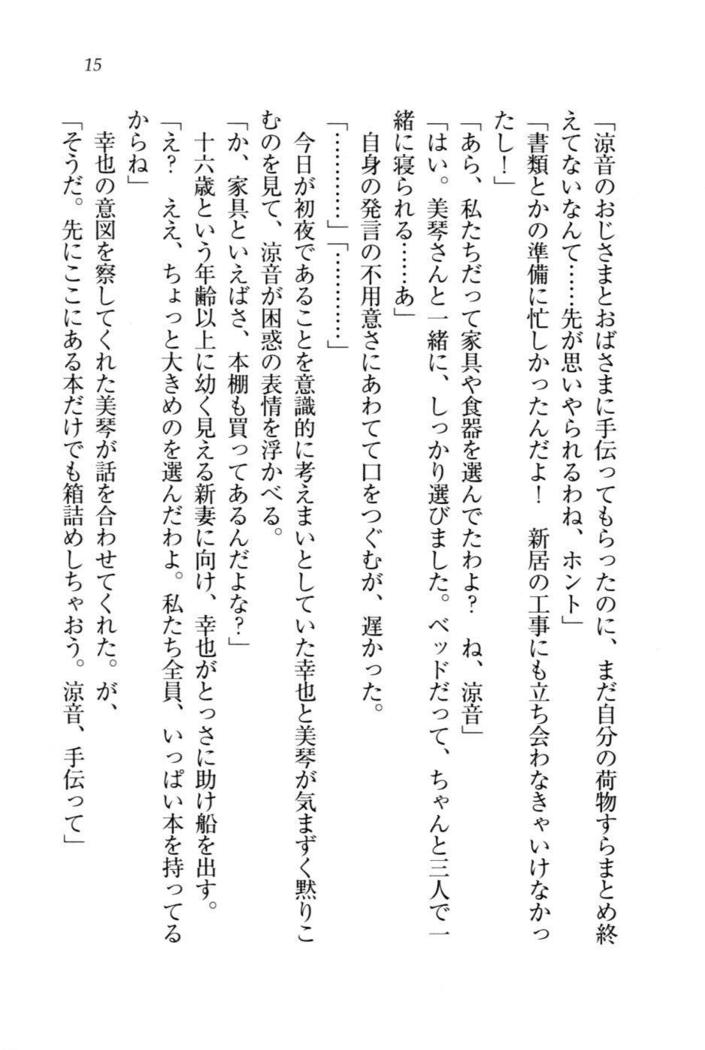 15
「涼音のおじさまとおばさまに手伝ってもらったのに、まだ自分の荷物すらまとめ終
えてないなんて……先が思いやられるわね、ホント」
「書類とかの準備に忙しかったんだよ！　新居の工事にも立ち会わなきゃいけなかっ
たし！」
「あら、私たちだって家具や食器を選んでたわよ？　ね、涼音」
「はい。美琴さんと一緒に、しっかり選びました。ベッドだって、ちゃんと三人で一
緒に寝られる……あ」
　自身の発言の不用意さにあわてて口をつぐむが、遅かった。
「…………」「…………」
　今日が初夜であることを意識的に考えまいとしていた幸也と美琴が気まずく黙りこ
むのを見て、涼音が困惑の表情を浮かべる。
「か、家具といえばさ、本棚も買ってあるんだよな？」
　十六歳という年齢以上に幼く見える新妻に向け、幸也がとっさに助け船を出す。
「え？　ええ、ちょっと大きめのを選んだわよ。私たち全員、いっぱい本を持ってる
からね」
　幸也の意図を察してくれた美琴が話を合わせてくれた。が、
「そうだ。先にここにある本だけでも箱詰めしちゃおう。涼音、手伝って」